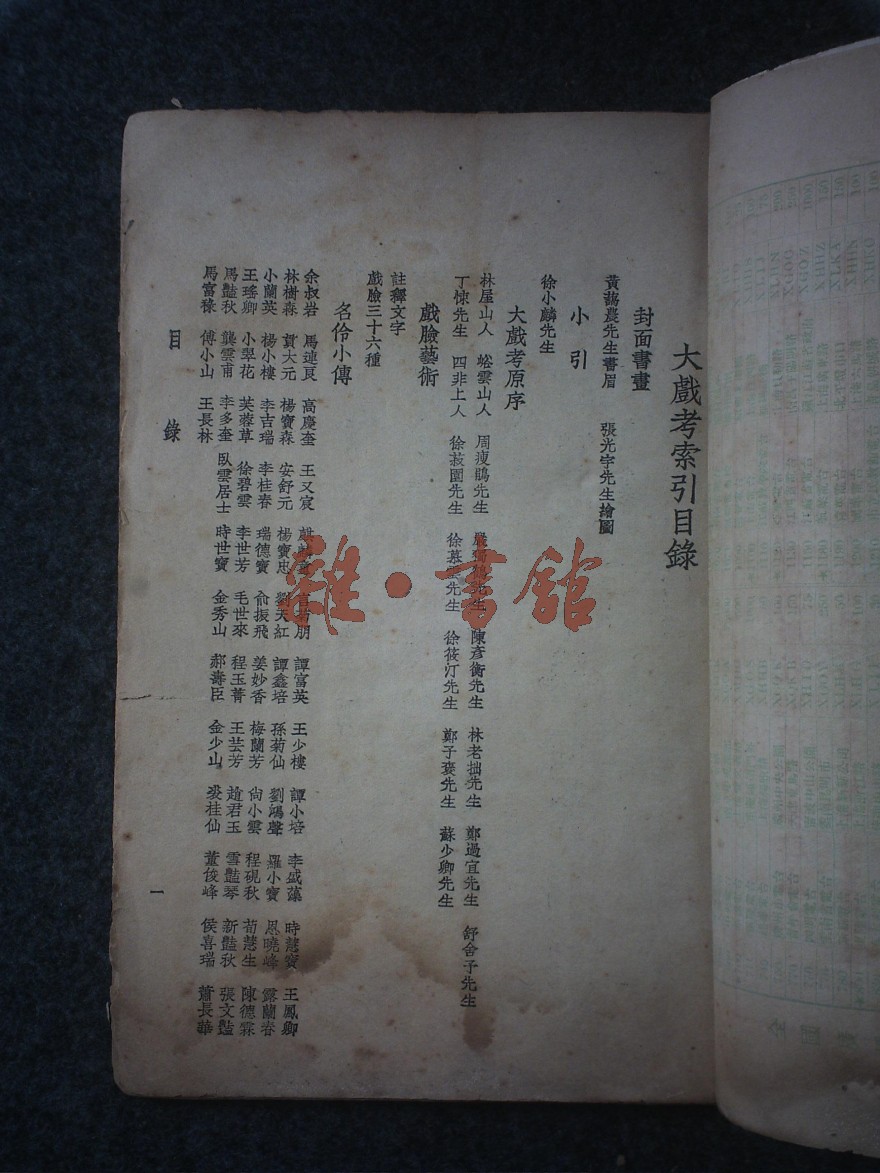 大戲考索引目錄
封面書畫
黃藹農先生書眉 張光宇先生繪圖
小引
徐小麟先生
大戲考原序
林屋山人 蚣雲山人 周瘦鵑先生 嚴獨鶴先生 陳彥衡先生 林老拙先生 鄭過宜先生 舒舍予先生
丁悚先生 四非上人 徐菽園先生 徐慕雲先生 徐筱汀先生 鄭子褒先生 蘇少卿先生
戲臉藝術
註釋文字
戲臉三十六種
名伶小傳
余叔岩 馬連良 高慶奎 王又宸 麒麟童 言菊朋 譚富英 王少樓 譚小培 李盛藻 時慧寶 王鳳卿
林樹森 貫大元 楊寶森 安舒元 楊寶忠 劉天紅 譚鑫培 孫菊仙 劉鴻聲 羅小寶 恩曉峰 露蘭春
小蘭英 楊小樓 李吉瑞 李桂春 瑞德寶 俞振飛 姜妙香 梅蘭芳 尙小雲 程硯秋 荀慧生 陳德霖
王瑤卿 小翠花 芙蓉草 徐碧雲 李世芳 毛世來 程玉菁 王芸芳 趙君玉 雪豔琴 新豔秋 張文豔
馬豔秋 龔雲甫 李多奎 臥雲居士 時世寶 金秀山 郝壽臣 金少山 裘桂仙 董俊峰 侯喜瑞 蕭長華
馬富祿 傅小山 王長林
目錄
一
雜·書館